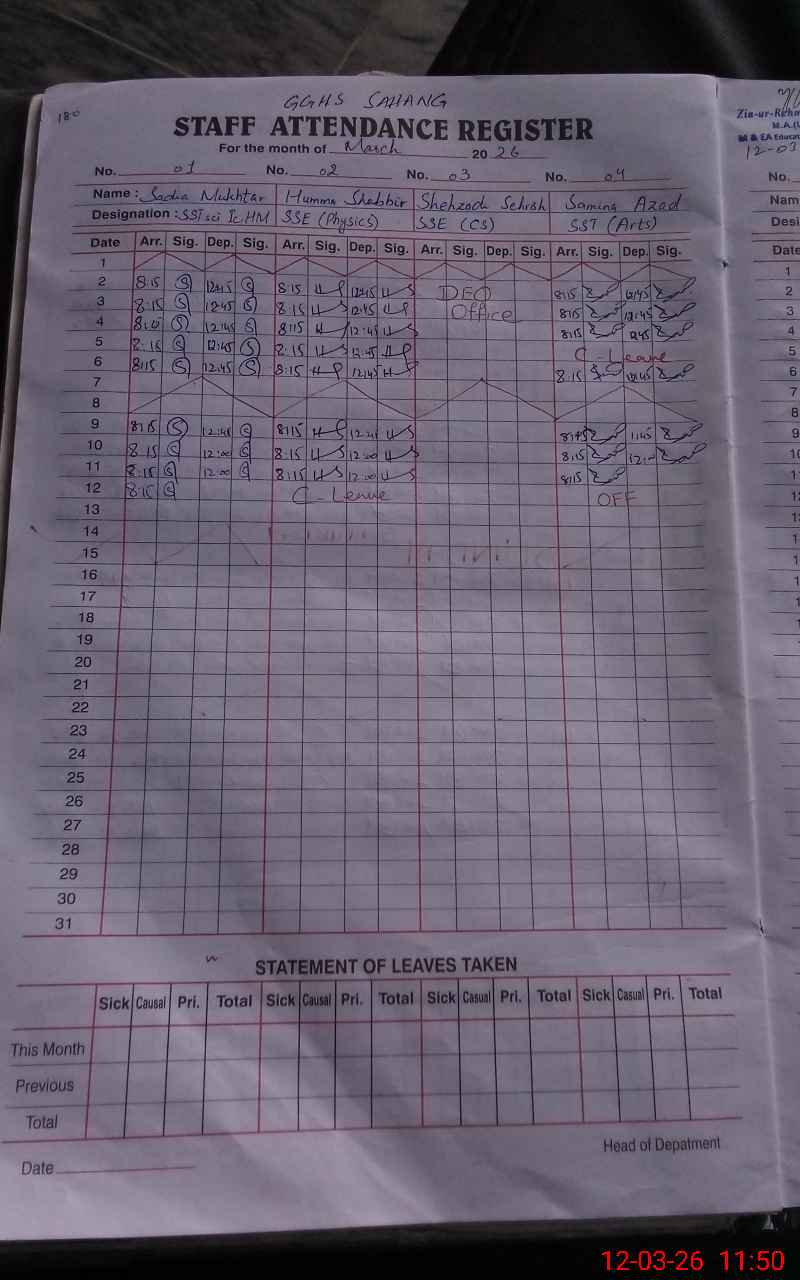 180
GGHS SAHANG
STAFF ATTENDANCE REGISTER
For the month of March 2026
No. 01 No. 02 No. 03 No. 04
Name : Sadia Mukhtar Humma Shabbir Shehzadi Sehrish Samina Azad
Designation : SST sci Ic.HM SSE (Physics) SSE (CS) SST (Arts)
Date Arr. Sig. Dep. Sig. Arr. Sig. Dep. Sig. Arr. Sig. Dep. Sig. Arr. Sig. Dep. Sig.
1
2 8:15 12:45 8:15 12:45 DEO 8:15 12:45
3 8:15 12:45 8:15 12:45 Office 8:15 12:45
4 12:45 8:15 12:45 8:15 12:45
5 8:15 12:45 8:15 12:45 C-Leave
6 8:15 12:45 8:15 12:45 8:15 12:45
7
8
9 8:15 8:15 1:45
10 8:15 12:00 8:15 12:00 8:15
11 8:15 12:00 8:15 12:00 8:15
12 8:15 C-Leave OFF
13
14
15
16
17
18
19
20
21
22
23
24
25
26
27
28
29
30
31
STATEMENT OF LEAVES TAKEN
Sick Causal Pri. Total Sick Causal Pri. Total Sick Casual Pri. Total Sick Casual Pri. Total
This Month
Previous
Total
Head of Depatment
Date
Zia-ur-Rehm
M.A.(
M & EA Educat
12-03
No.
Nam
Desi
Date
1
2
3
4
5
6
7
8
9
10
11
12-03-26 11:50